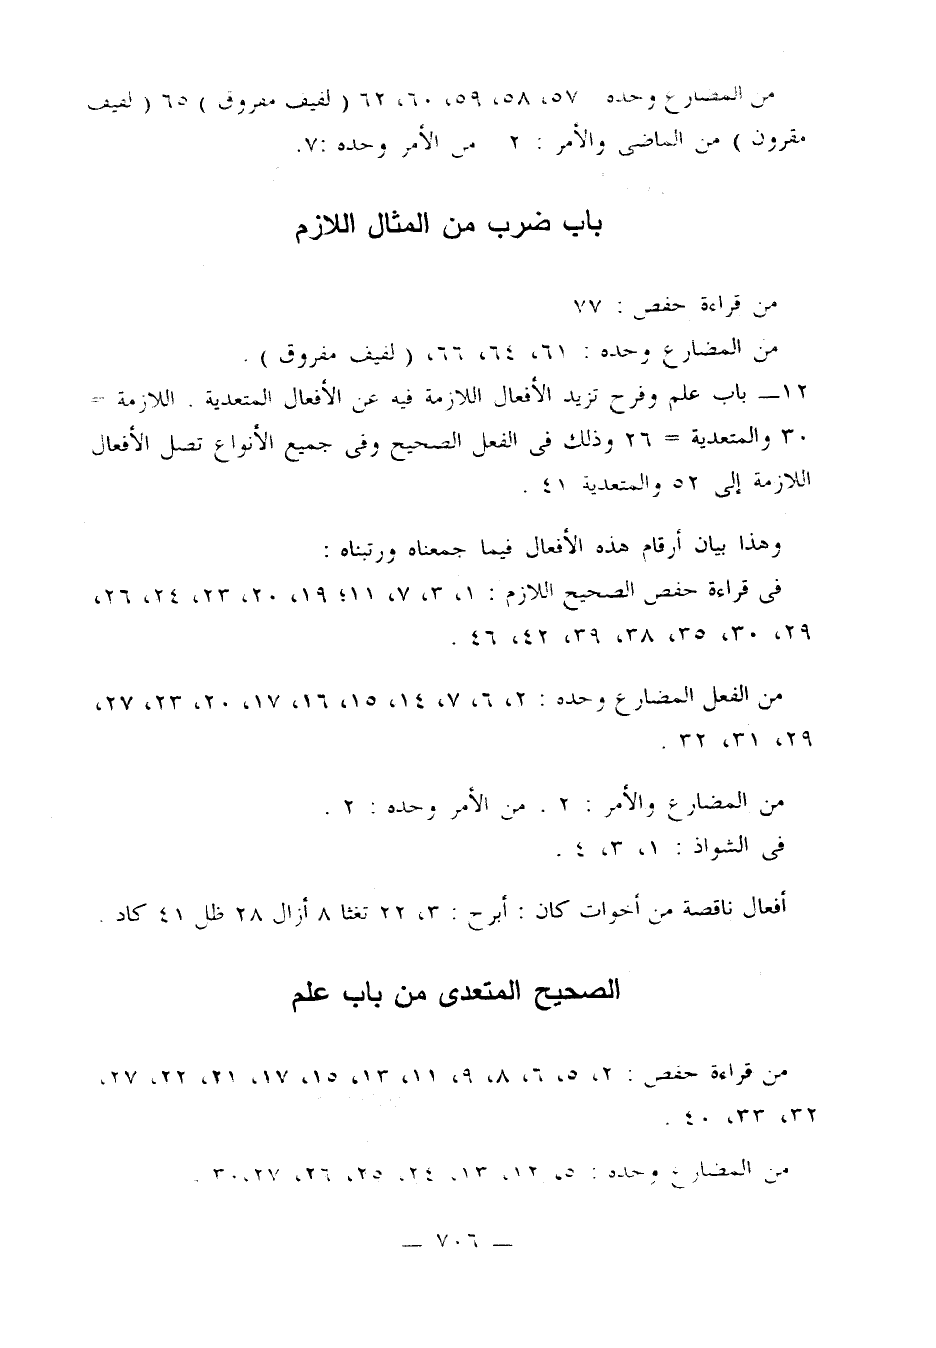 من المضارع وحده ٥٧، ٥٨، ٥٩، ٦٠، ٦٢ ( لفيف مفروق ) ٦٥ ( لفيف
مقرون ) من الماضى والأمر : ٢ من الأمر وحده :٧.
باب ضرب من المثال اللازم
من قراءة حفص : ٧٧
من المضارع وحده : ٦١، ٦٤، ٦٦، ( لفيف مفروق ) .
١٢ــ باب علم وفرح تزيد الأفعال اللازمة فيه عن الأفعال المتعدية . اللازمة =
٣٠ والمتعدية = ٢٦ وذلك فى الفعل الصحيح وفى جميع الأنواع تصل الأفعال
اللازمة إلى ٥٢ والمتعدية ٤١ .
وهذا بيان أرقام هذه الأفعال فيما جمعناه ورتبناه :
فى قراءة حفص الصحيح اللازم : ١، ٣، ٧، ١١؛ ١٩، ٢٠، ٢٣، ٢٤، ٢٦،
٢٩، ٣٠، ٣٥، ٣٨، ٣٩، ٤٢، ٤٦ .
من الفعل المضارع وحده : ٢، ٦، ٧، ١٤، ١٥، ١٦، ١٧، ٢٠، ٢٣، ٢٧،
٢٩، ٣١، ٣٢ .
من المضارع والأمر : ٢ . من الأمر وحده : ٢ .
فى الشواذ : ١، ٣، ٤ .
أفعال ناقصة من أخوات كان : أبرح : ٣، ٢٢ تفتا ٨ أزال ٢٨ ظل ٤١ كاد .
الصحيح المتعدى من باب علم
من قراءة حفص : ٢، ٥، ٦، ٨، ٩، ١١، ١٣، ١٥، ١٧، ٢١، ٢٢، ٢٧،
٣٢، ٣٣، ٤٠ .
من المضارع وحده : ٥، ١٢، ١٣، ٢٤، ٢٥، ٢٦، ٣٠،٢٧ .
ــ ٧٠٦ ــ